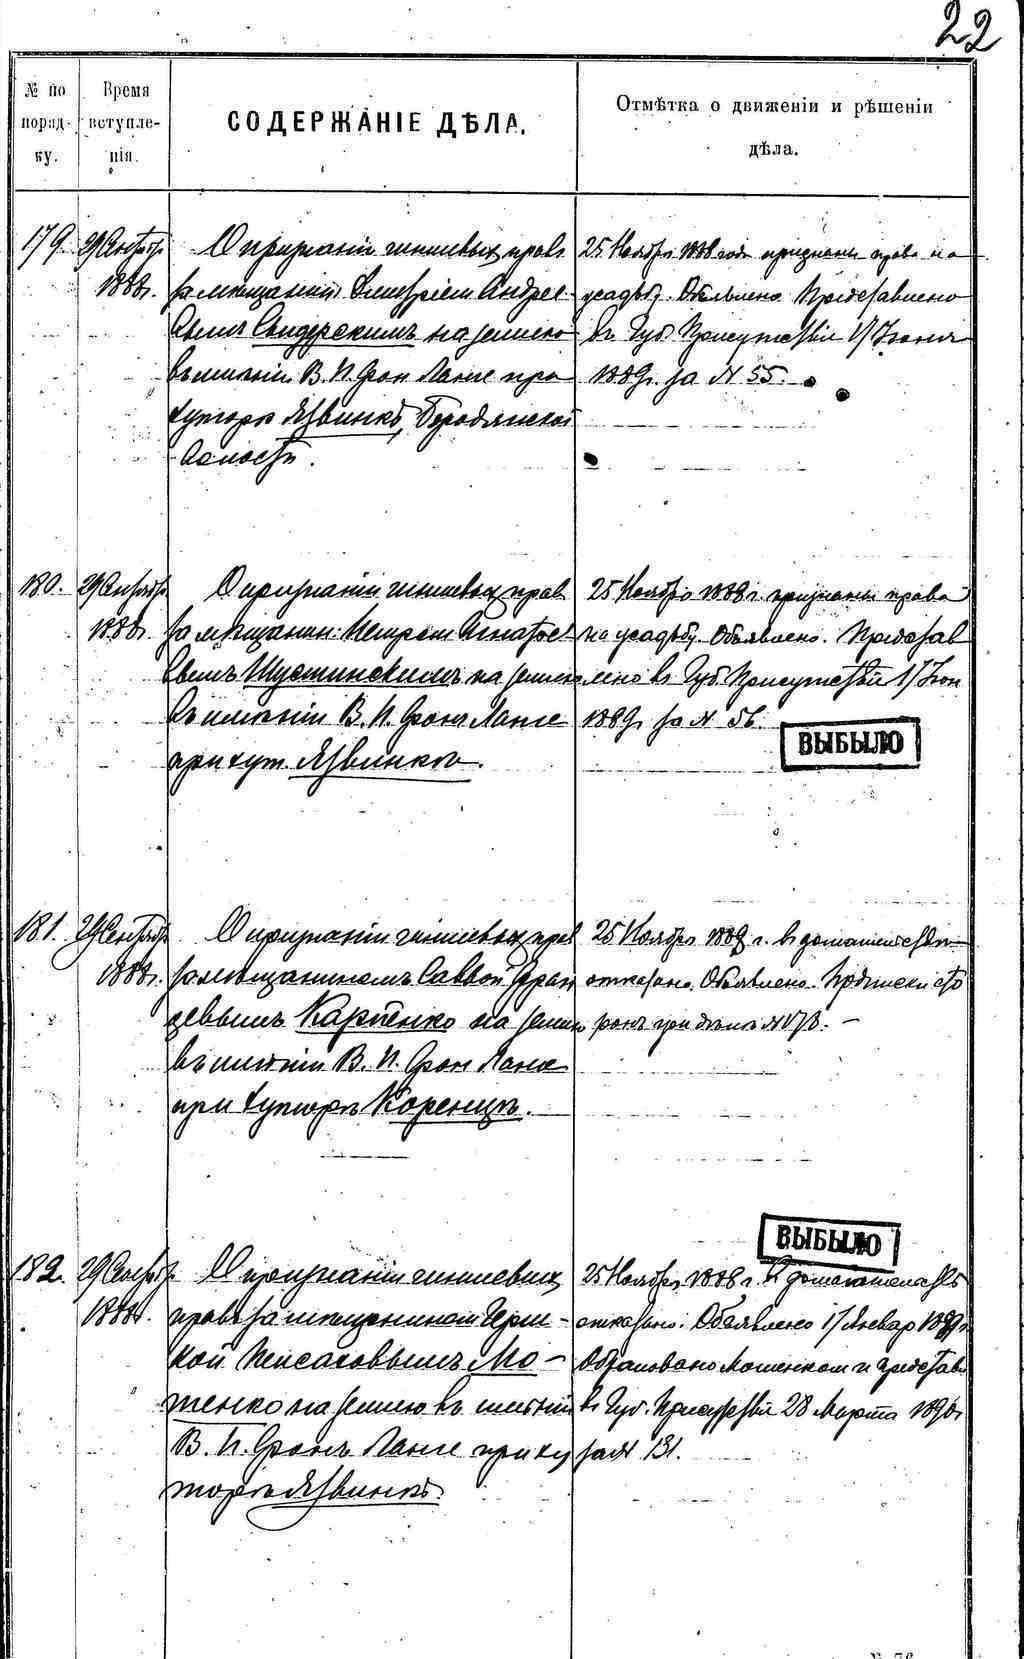 22
№ по
поряд-
ку.
Время
вступле-
нія.
СОДЕРЖАНІЕ ДѢЛА.
Отмѣтка о движеніи и рѣшеніи
дѣла.
179. 29 Сентября
1888 г.
О признаніи чиншевыхъ правъ
за мѣщаниномъ Дмитріемъ Андрее-
вымъ Свидерскимъ на землю
въ имѣніи В. П. фонъ Ланге при
хуторѣ Язвинкѣ, Бородянской
волости.
25 Ноября 1888 года признаны права на
усадьбу. Объявлено. Представлено
въ Губ. Присутствіе 1/ Іюня
1889 г. за № 55.
180. 29 Сентября
1888 г.
О признаніи чиншевыхъ правъ
за мѣщанин: Петромъ Игнатье-
вымъ Шустинскимъ на землю
въ имѣніи В. П. фонъ Ланге
при хут. Язвинкѣ.
25 Ноября 1888 г. признаны права
на усадьбу. Объявлено. Представ
лено въ Губ. Присутствіе 1/ Іюн
1889 г. за № 56.
ВЫБЫЛО
181. 29 Сентября
1888 г.
О признаніи чиншевыхъ правъ
за мѣщаниномъ Саввой
Карпенко на землю
въ имѣніи В. П. фонъ Ланге
при хуторѣ Коренцѣ.
25 Ноября 1888 г. въ домогательствѣ
отказано. Объявлено. Подписки сто
ронъ при дѣлѣ №
ВЫБЫЛО
182. 29 Сентября
1888 г.
О признаніи чиншевыхъ
правъ за мѣщаниномъ Герш-
кой Пейсаховымъ Мо-
тенко на землю въ имѣніи
В. П. фонъ Ланге при ху
торѣ Язвинкѣ.
25 Ноября 1888 г. въ домогательствѣ
отказано. Объявлено 1/ Январ 1889 г.
Обжаловано и представ.
въ Губ. Присутствіе 28 Марта 1890 г.
за № 131.